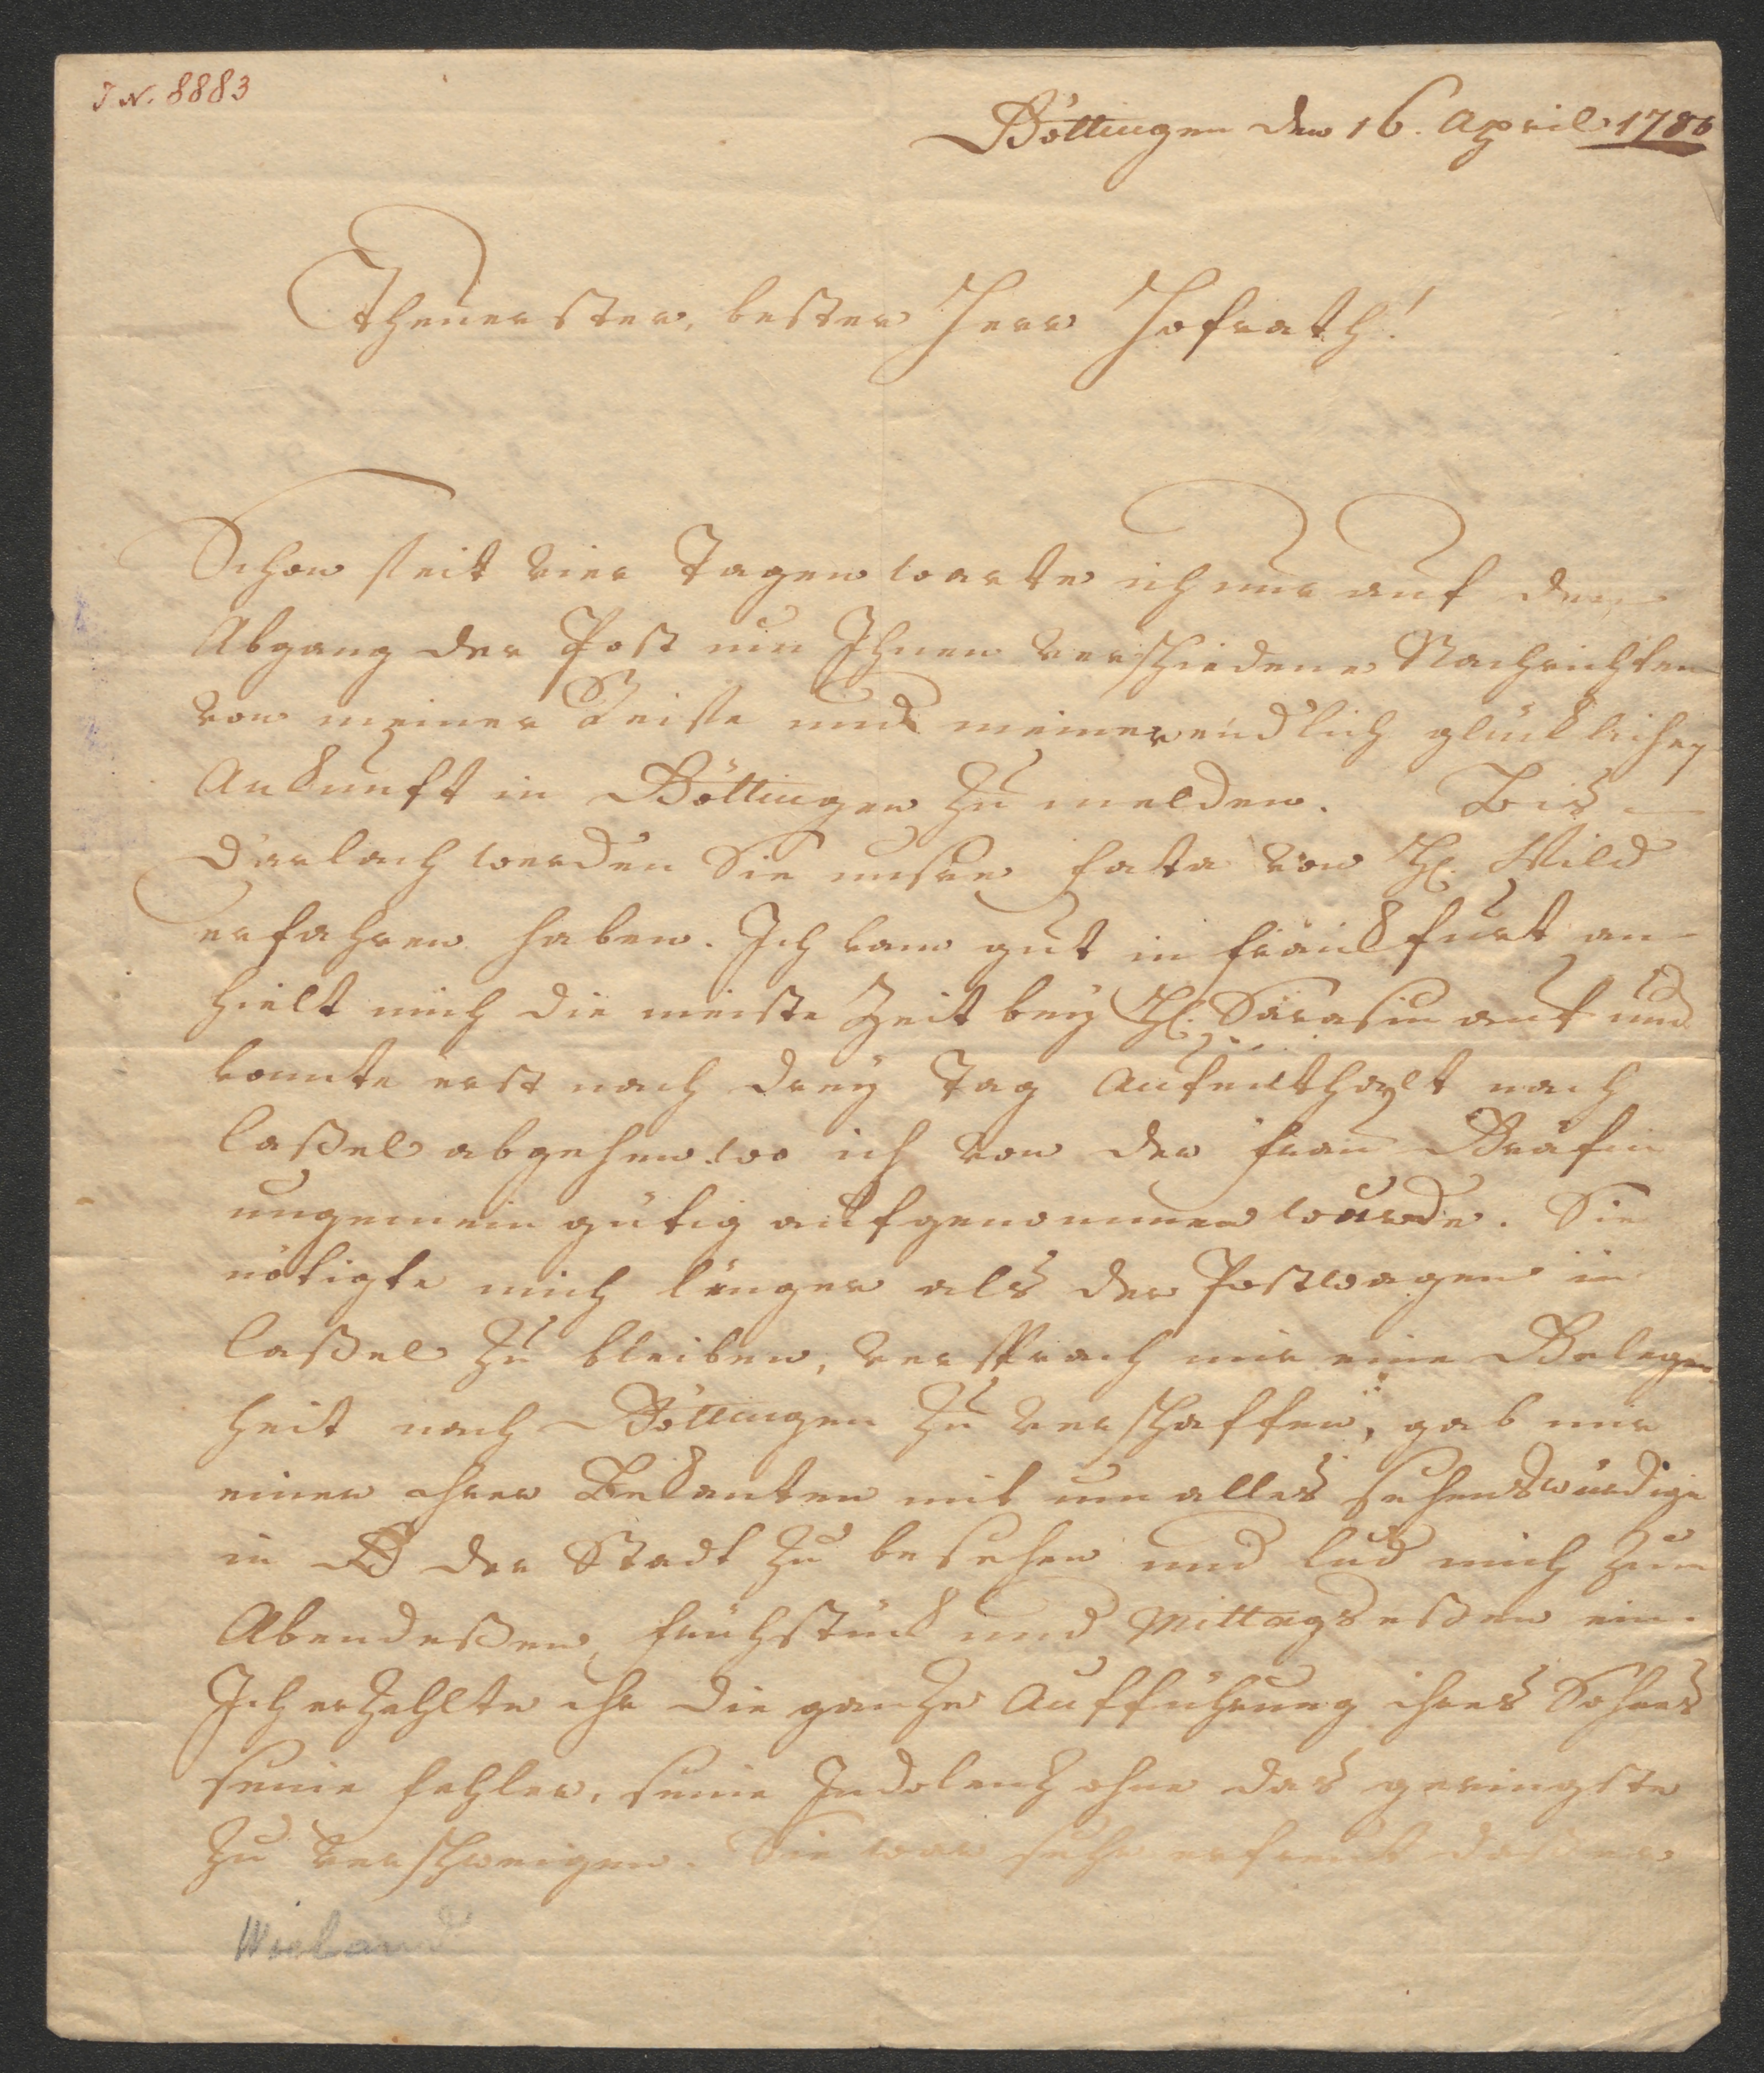 J. N. 8883
Göttingen den 16. April 1786
Theuerster, bester Herr Hofrath!
Schon seit vier Tagen warte ich nur auf den
Abgang der Post um Ihnen verschiedene Nachrichten
von meiner Reise und meiner endlich glücklichen
Ankunft in Göttingen zu melden. Bis
Durlach werden Sie unsre fata von H. Wild
erfahren haben. Ich kam gut in Frankfurt an
hielt mich die meiste Zeit bey H. Sarasin auf und
konnte erst nach drey Tag Aufenthalt nach
Caßel abgehen wo ich von der Frau Gräfin
ungemein gütig aufgenommen wurde. Sie
nötigte mich länger als der Postwagen in
Caßel zu bleiben, versprach mir eine Gelegen
heit nach Göttingen zu verschaffen, gab mir
einen ihrer Bekanten mit um alles sehenswürdige
in der Stadt zu besehen und lud mich zum
Abendeßen, Frühstück und Mittagseßen ein.
Ich erzehlte ihr die ganze Aufführung ihres Sohnes
seine Fehler, seine Indolenz ohne das geringste
zu verschweigen. Sie war sehr erfreut daß er
Wieland